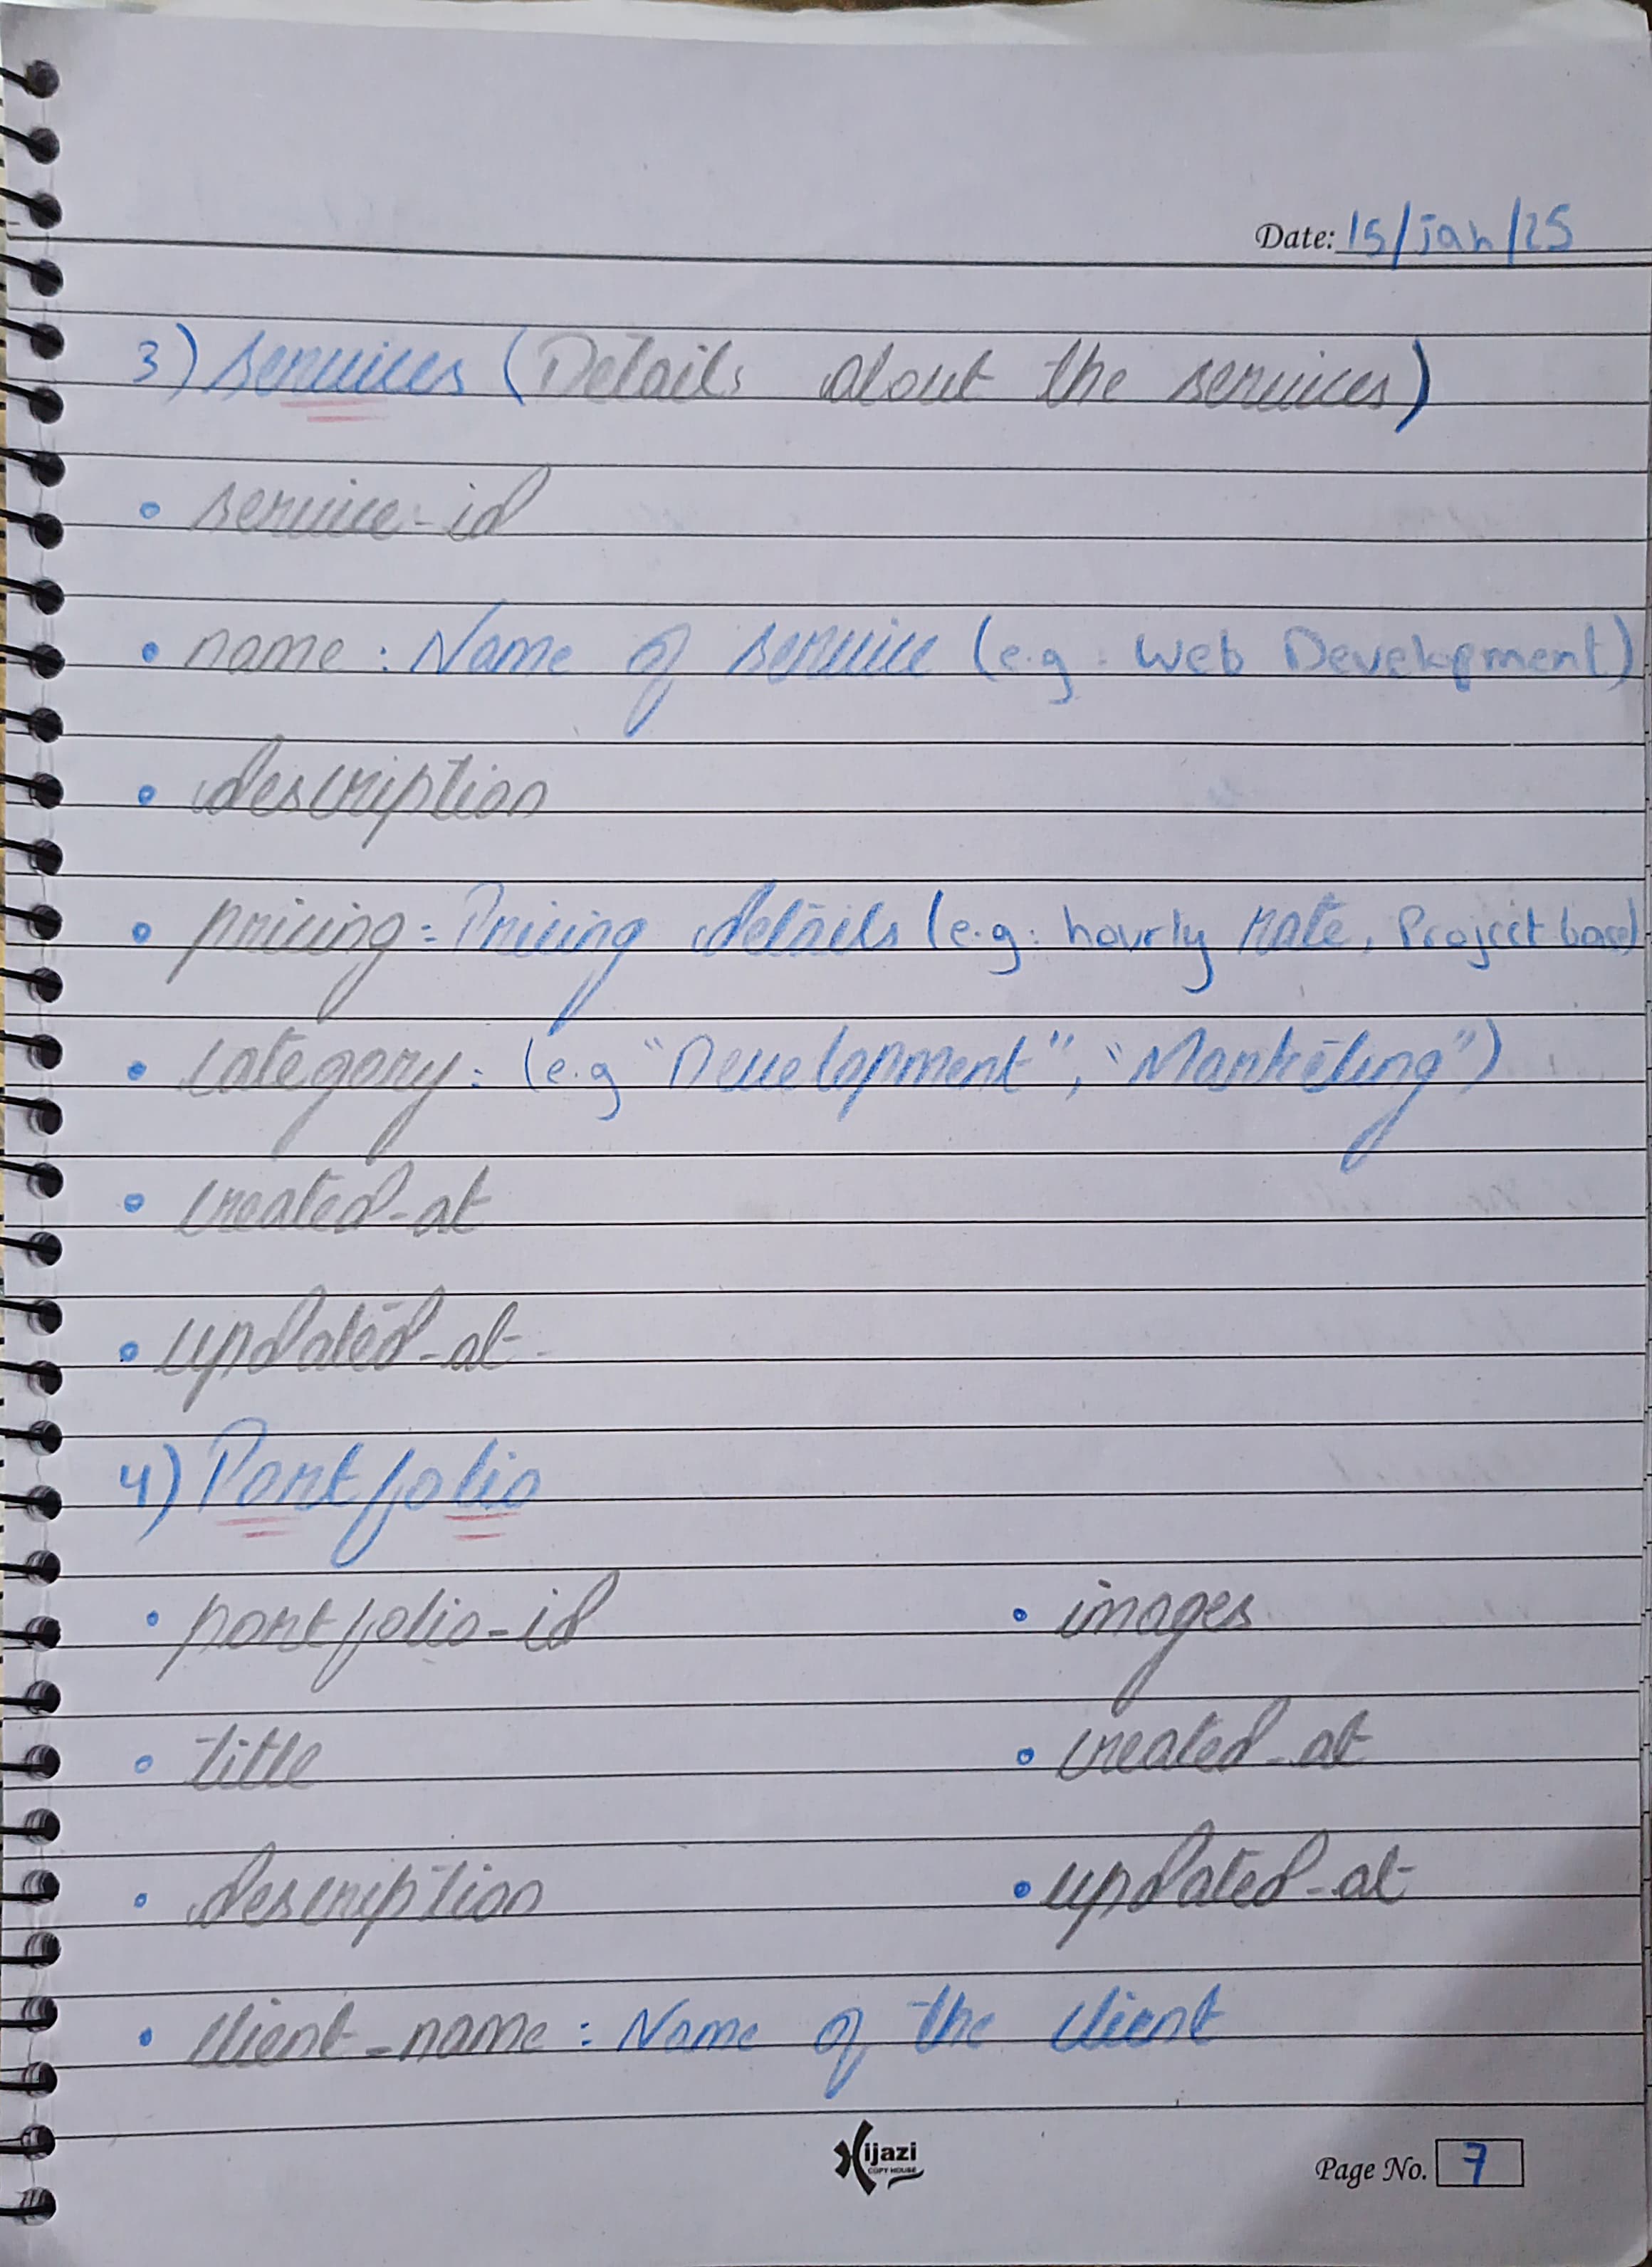 Date: 15/Jan/25
3) Services (Details about the services)
• service-id
• name : Name of service (e.g : Web Development)
• description
• pricing : Pricing details (e.g : hourly rate, Project base)
• category : (e.g "Development", "Marketing")
• created-at
• updated-at
4) Portfolio
• portfolio-id
• title
• description
• client_name : Name of the client
• images
• created_at
• updated-at
Hijazi
COPY HOUSE
Page No. 7